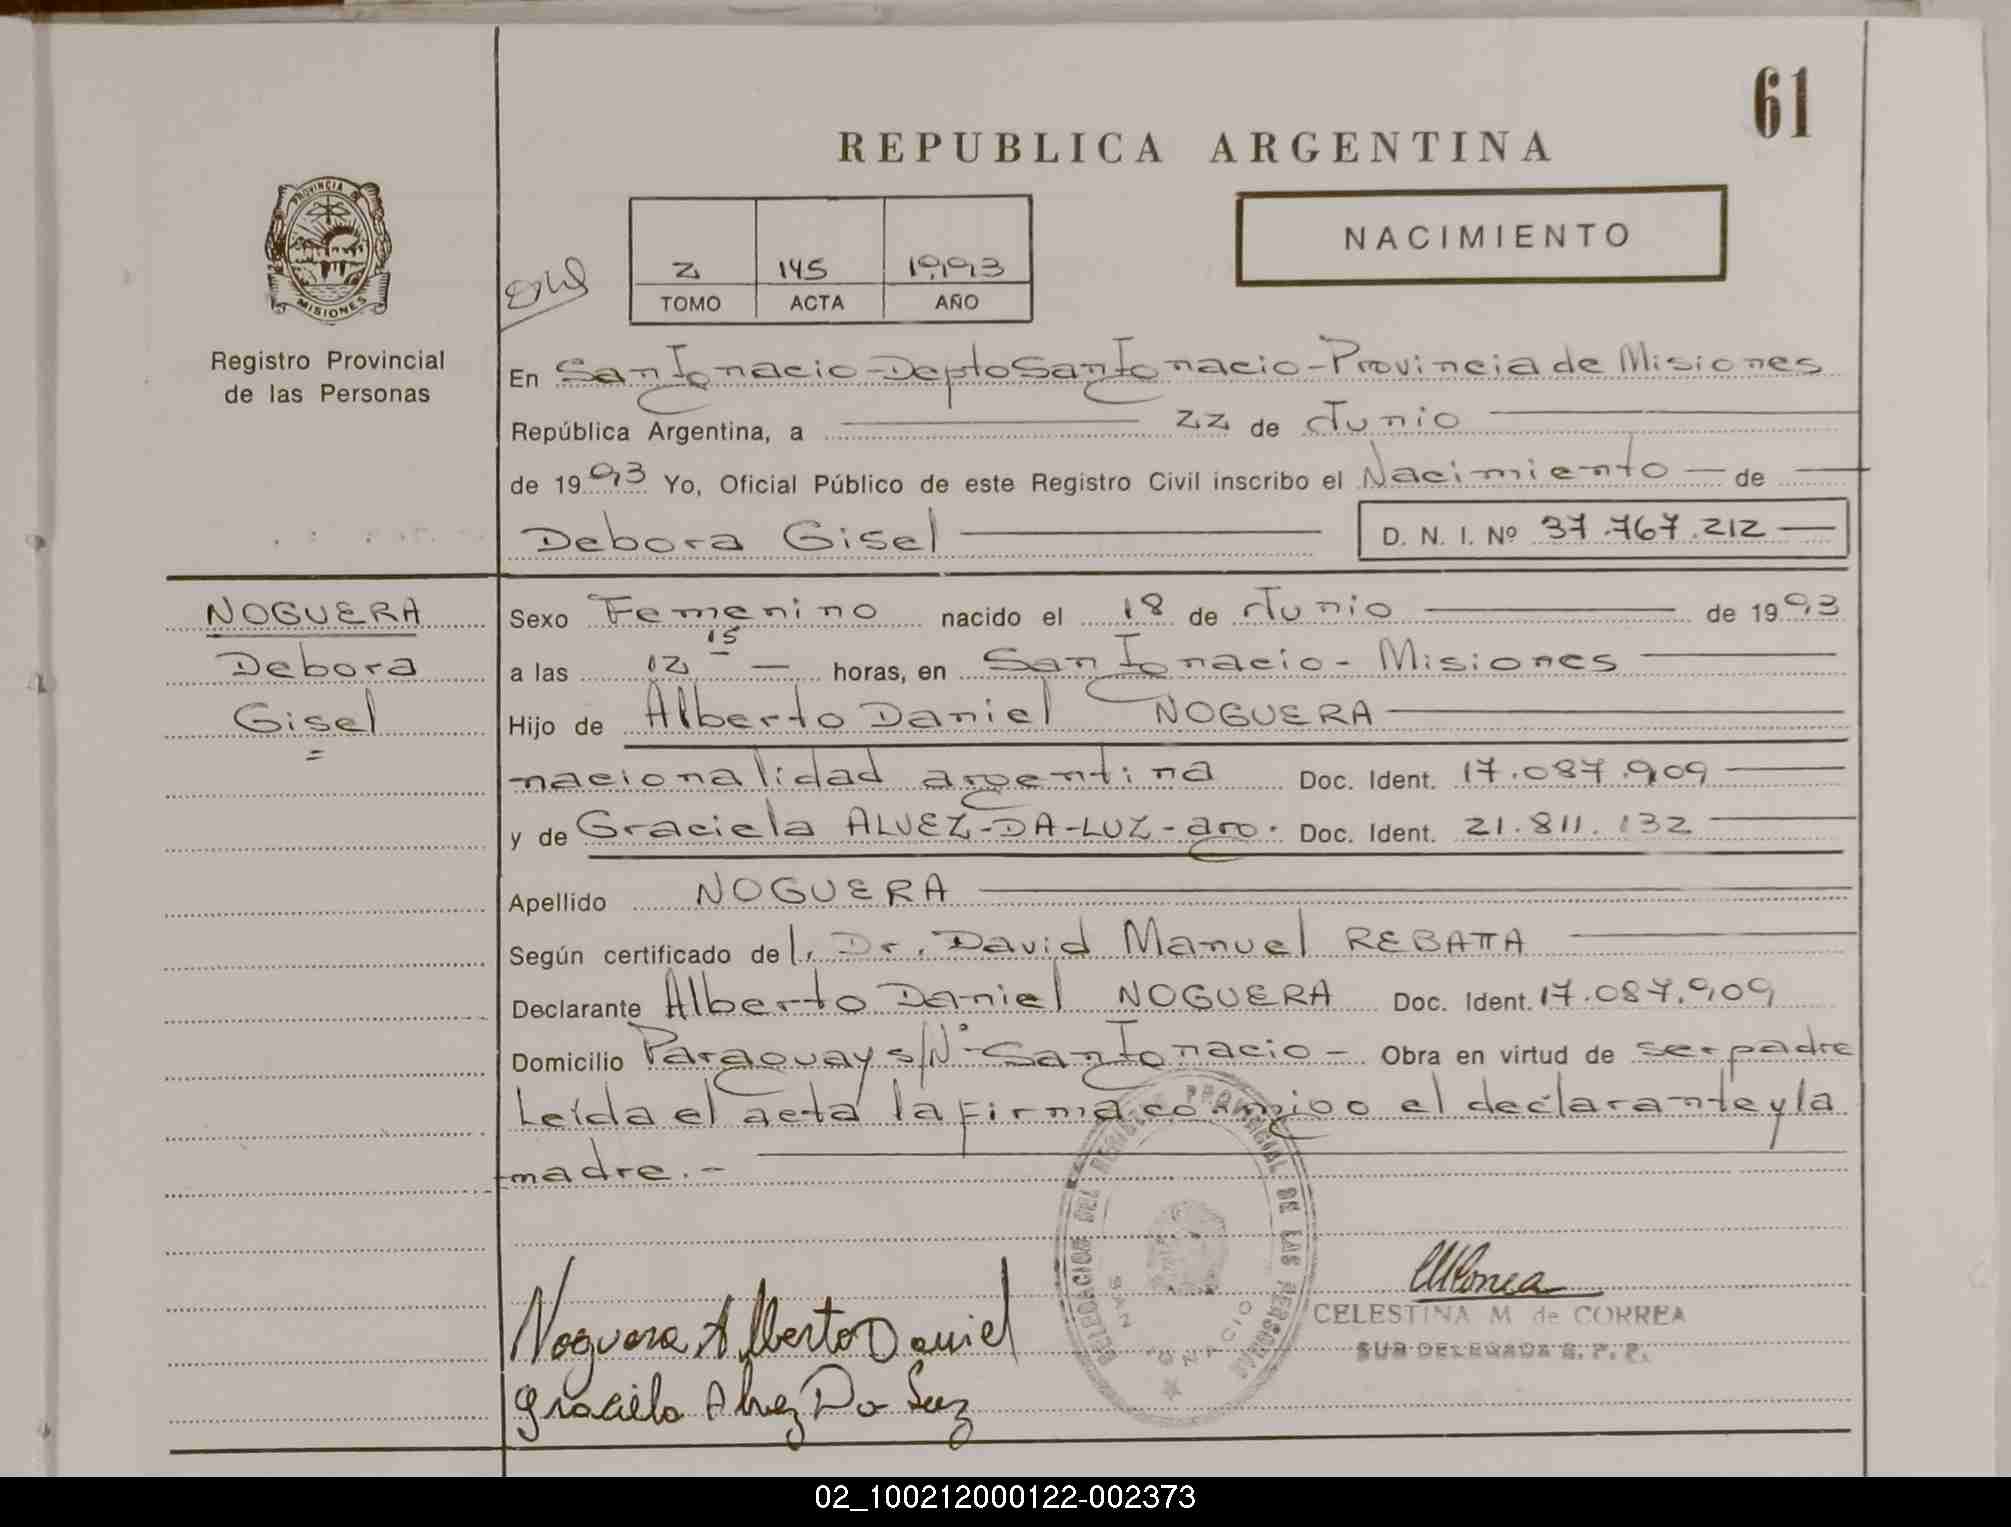 61
REPUBLICA ARGENTINA
PROVINCIA DE
MISIONES
Registro Provincial
de las Personas
2 145 1993
TOMO ACTA AÑO
NACIMIENTO
En San Ignacio - Depto San Ignacio - Provincia de Misiones
República Argentina, a 22 de Junio
de 1993 Yo, Oficial Público de este Registro Civil inscribo el Nacimiento - de
Debora Gisel D. N. I. Nº 37.767.212
NOGUERA
Debora
Gisel
Sexo Femenino nacido el 18 de Junio de 1993
a las 12 15 horas, en San Ignacio - Misiones
Hijo de Alberto Daniel NOGUERA
nacionalidad argentina Doc. Ident. 17.087.909
y de Graciela ALVEZ-DA-LUZ-arg. Doc. Ident. 21.811.132
Apellido NOGUERA
Según certificado del, Dr. David Manuel REBATTA
Declarante Alberto Daniel NOGUERA Doc. Ident. 17.087.909
Domicilio Paraguay s/Nº - San Ignacio - Obra en virtud de ser padre
Leída el acta la firma conmigo el declarante y la
madre.-
DELEGACION DEL REGISTRO PROVINCIAL DE LAS PERSONAS
SAN IGNACIO
CELESTINA M de CORREA
SUB DELEGADA R. P. P.
Noguera Alberto Daniel
Graciela Alvez Da Luz
02_100212000122-002373